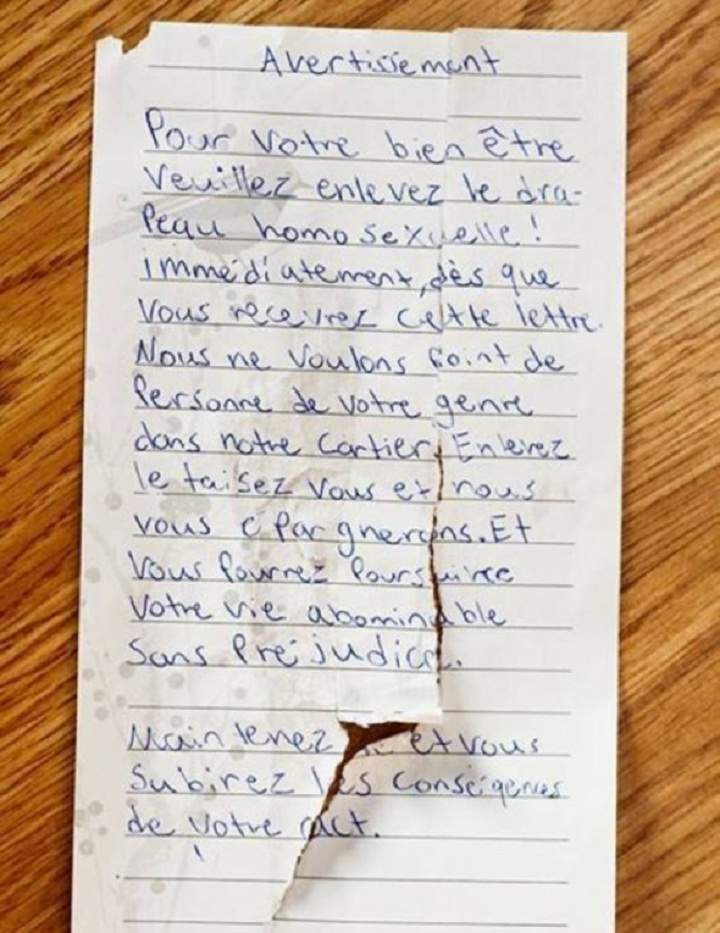 Avertissement
Pour votre bien être
veuillez enlevez le dra-
peau homosexuelle!
immédiatement, dès que
vous recevrez cette lettre.
Nous ne voulons point de
personne de votre genre
dans notre cartier. Enlevez
le taisez vous et nous
vous épargnerons. Et
vous pourrez poursuivre
votre vie abominable
sans préjudice.
Maintenez et vous
subirez les conséigences
de votre act.